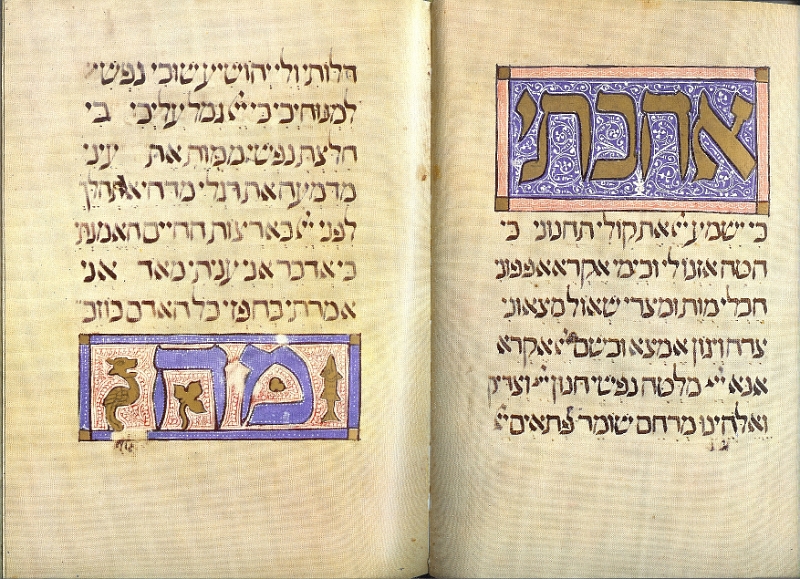 אהבתי
כי ישמע יי את קולי תחנוני כי
הטה אזנו לי ובימי אקרא אפפוני
חבלי מות ומצרי שאול מצאוני
צרה ויגון אמצא ובשם יי אקרא
אנא יי מלטה נפשי חנון יי וצדיק
ואלהינו מרחם שומר פתאים יי
דלותי ולי יהושיע שובי נפשי
למנוחיכי כי יי גמל עליכי כי
חלצת נפשי ממות את עיני
מדמעה את רגלי מדחי אתהלך
לפני יי בארצות החיים האמנתי
כי אדבר אני עניתי מאד אני
אמרתי בחפזי כל האדם כוזב
מה